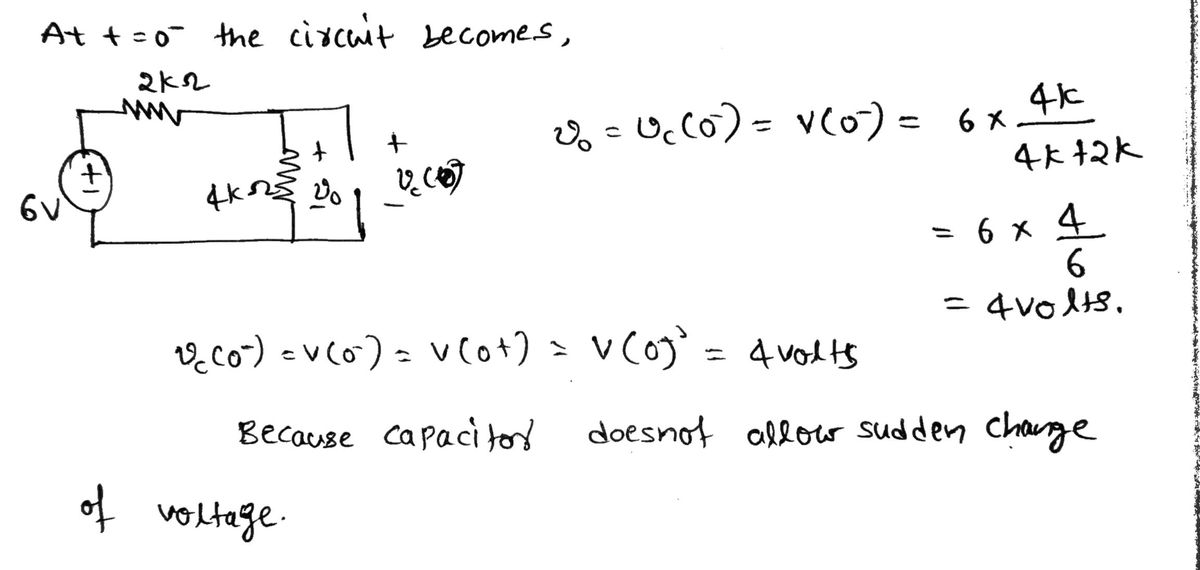 At t = 0⁻ the circuit becomes,
2kΩ
6V
+
4kΩ
+
v₀
-
+
v_c(0⁻)
-
v₀ = v_c(0⁻) = v(0⁻) = 6 × 4k / 4k+2k
= 6 × 4 / 6
= 4volts.
v_c(0⁻) = v(0⁻) = v(0+) = v(0) = 4volts
Because capacitor doesnot allow sudden change
of voltage.